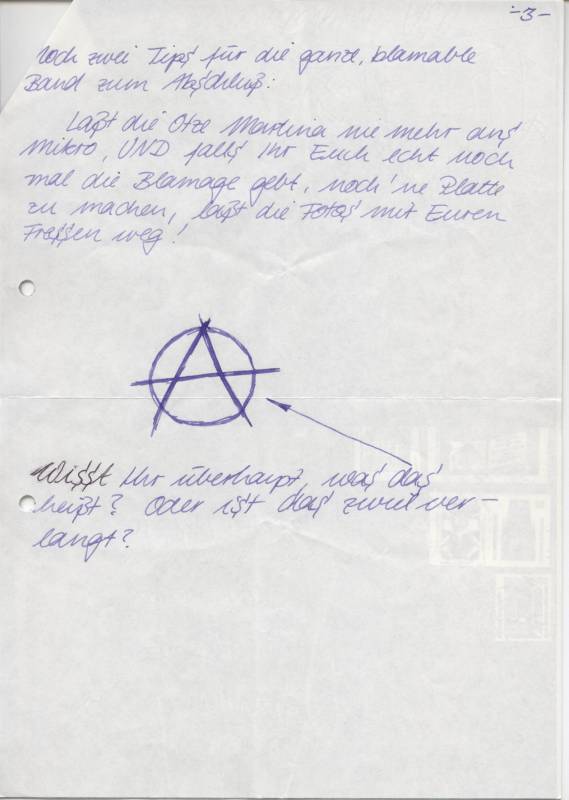 -3-
Noch zwei Tips für die ganze, blamable
Band zum Abschluß:
Laßt die Otze Martina nie mehr ans
Mikro, UND falls Ihr Euch echt noch
mal die Blamage gebt, noch 'ne Platte
zu machen, laßt die Fotos mit Euren
Fressen weg!
A
Wisst Ihr überhaupt, was das
heißt? Oder ist das zuviel ver-
langt?